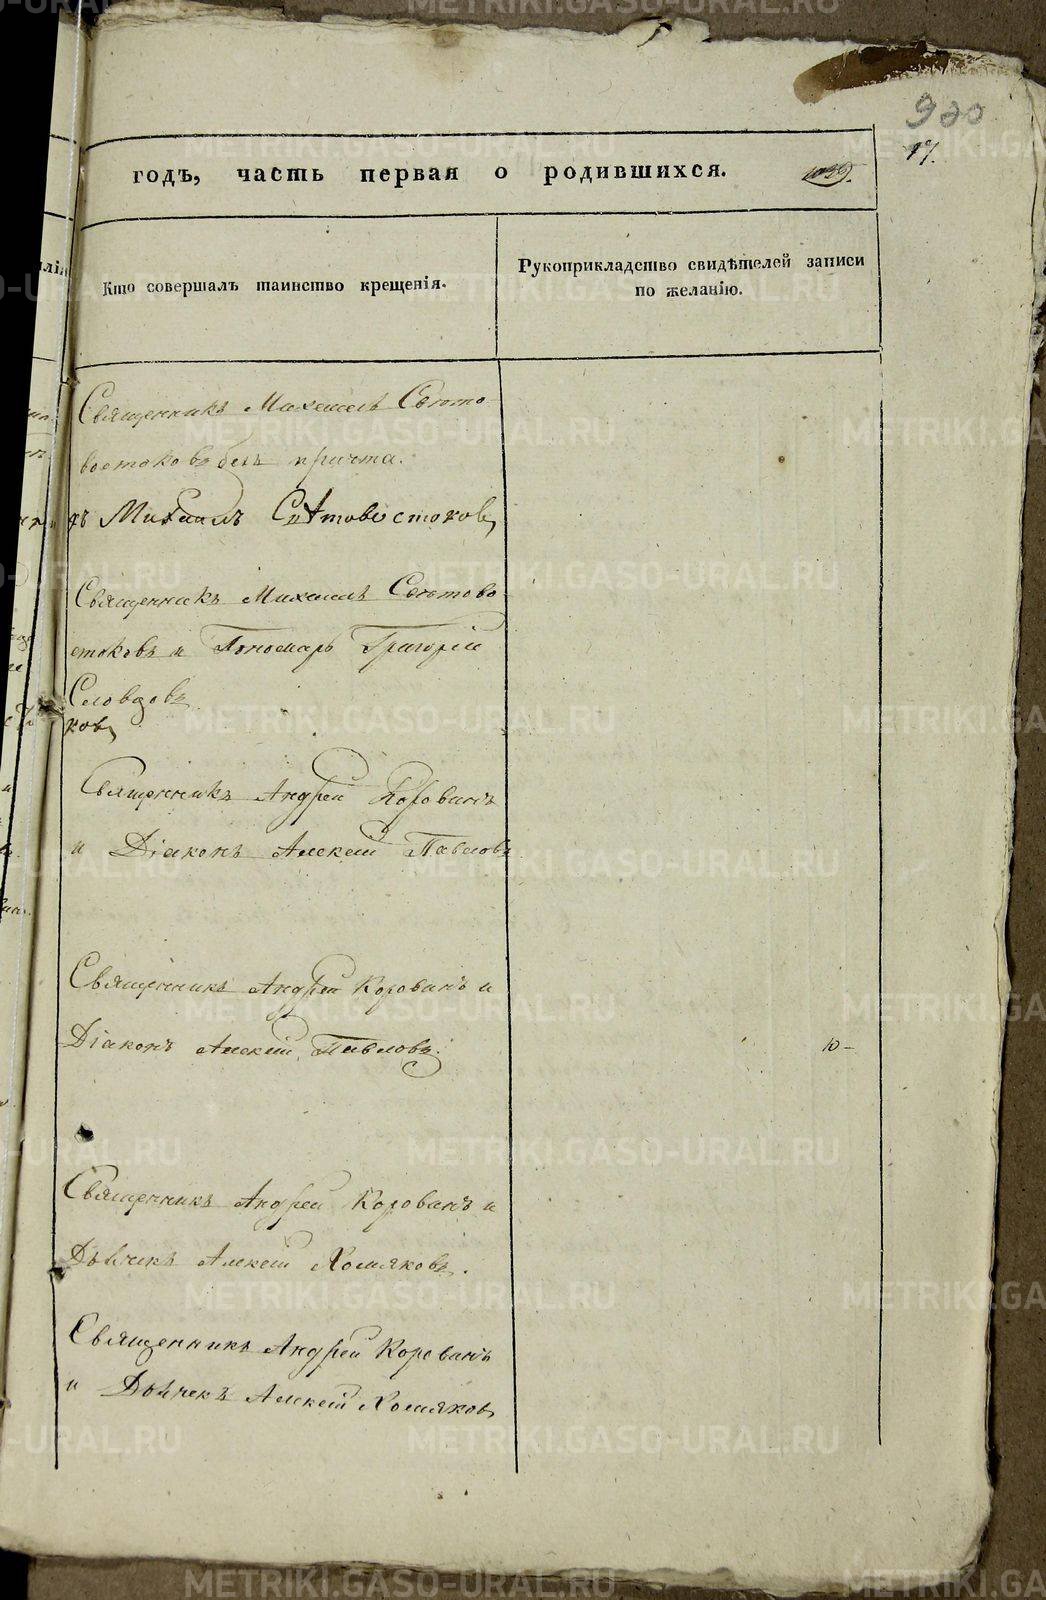 920
17.
годъ, часть первая о родившихся.
Кто совершалъ таинство крещенія.
Рукоприкладство свидѣтелей записи
по желанію.
Священникъ Михаилъ Свѣто
востоковъ безъ причта.
Михаилъ Свѣтовостоковъ
Священникъ Михаилъ Свѣтово
стоковъ и Пономарь Григорій
Словцовъ
ковъ
Священникъ Андрей Корованъ
и Діаконъ Алексѣй Павловъ
Священникъ Андрей Корованъ и
Діаконъ Алексѣй Павловъ.
Священникъ Андрей Корованъ и
Дьячекъ Алексѣй Хомяковъ.
Священникъ Андрей Корованъ
и Дьячекъ Алексѣй Хомяковъ
METRIKI.GASO-URAL.RU